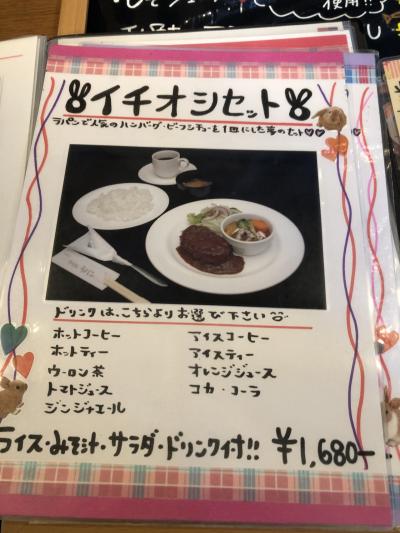 イチオシセット
ラパンで人気のハンバーグ・ビーフシチューを1皿にした夢のセット♡♡♡
ドリンクは、こちらよりお選び下さい
ホットコーヒー
ホットティー
ウーロン茶
トマトジュース
ジンジャエール
アイスコーヒー
アイスティー
オレンジジュース
コカ・コーラ
ライス・みそ汁・サラダ・ドリンク付!! ¥1,680-